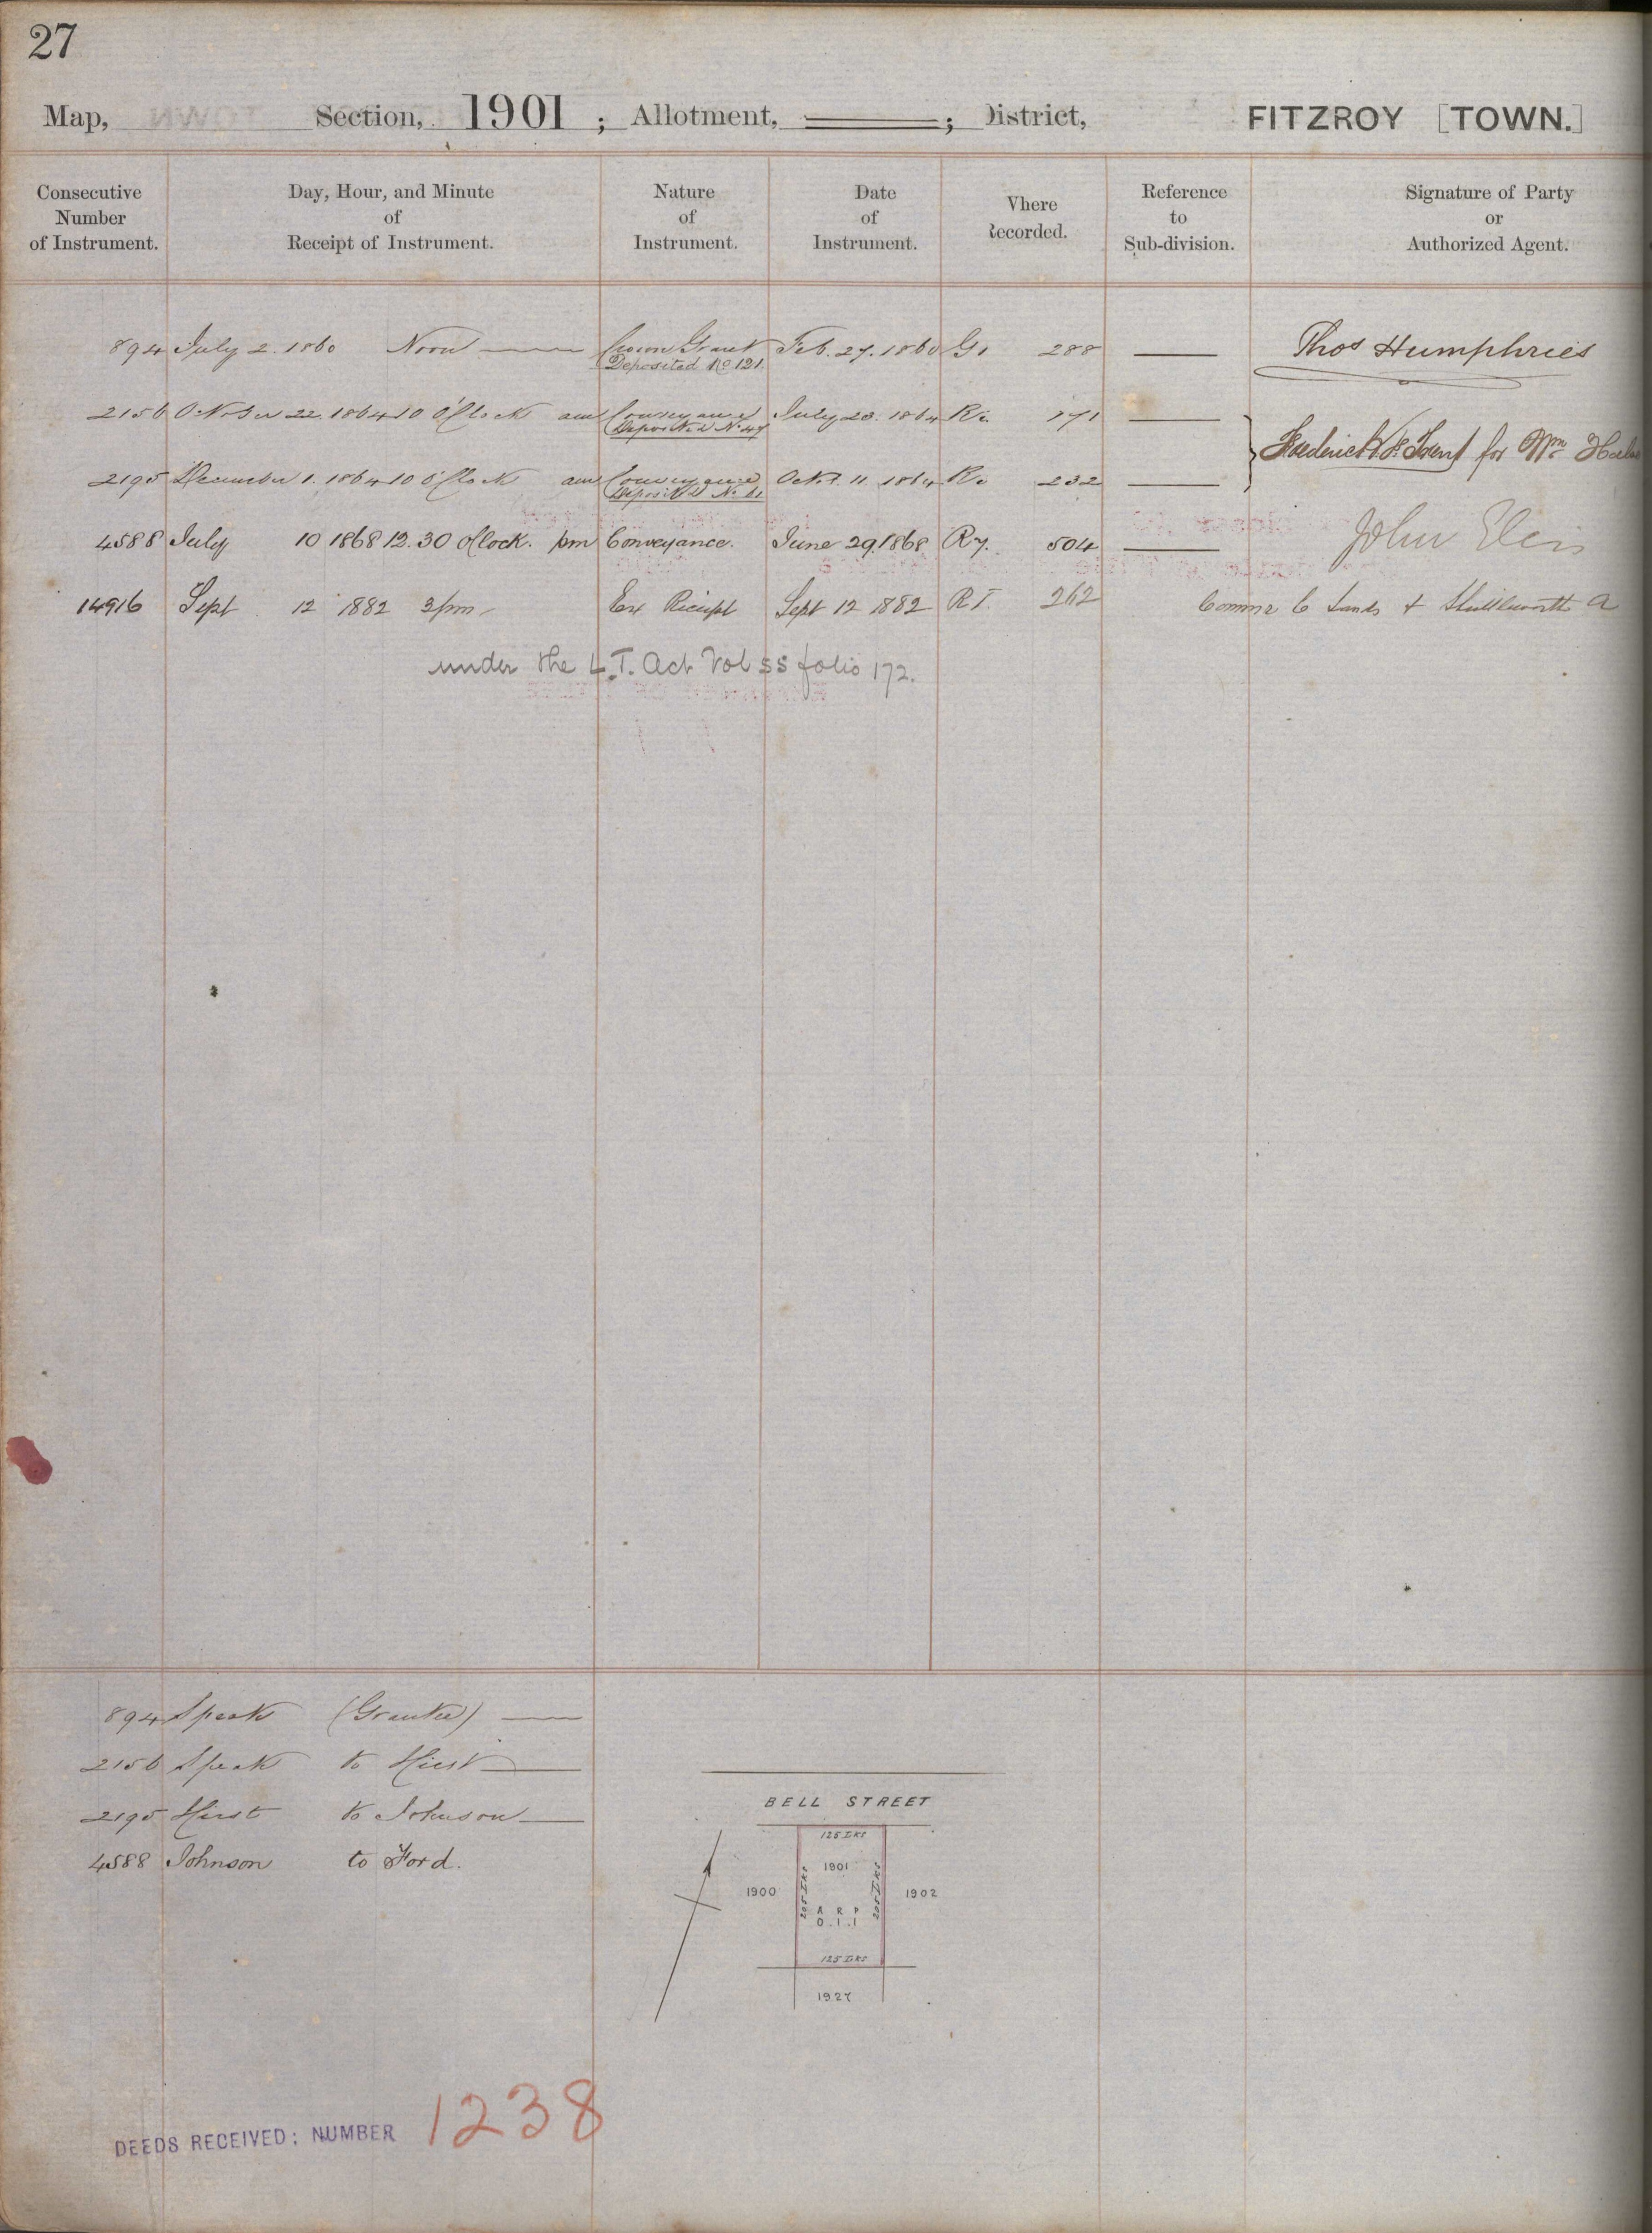 27
Map, Section, 1901 ; Allotment, ; District, FITZROY [TOWN.]
Consecutive Number of Instrument.
Day, Hour, and Minute of Receipt of Instrument.
Nature of Instrument.
Date of Instrument.
Where Recorded.
Reference to Sub-division.
Signature of Party or Authorized Agent.
894 July 2. 1860 Noon Crown Grant Feb. 27. 1860 G1 288 Thos Humphries
Deposited No 121.
2156 October 22. 1864 10 O'Clock am Conveyance July 23. 1864 R2 171
Deposited No 47
Frederick for Wm
2195 December 1. 1864 10 O'Clock am Conveyance Octr. 11 1864 R2 232
Deposited No 61
4588 July 10 1868 12.30 o'clock. pm Conveyance. June 29. 1868 R7. 504 John
14916 Sept 12 1882 3 pm Ex Receipt Sept 12 1882 R T. 262 Commr C Lands &
under the L.T. Act Vol 55 folio 172.
894 Speak (Grantee)
2156 Speak to Hirst
2195 Hirst to Johnson
4588 Johnson to Ford.
BELL STREET
125 LKS
1901
1900
205 LKS
205 LKS
1902
A R P
0..1..1
125 LKS
1927
DEEDS RECEIVED: NUMBER 1238